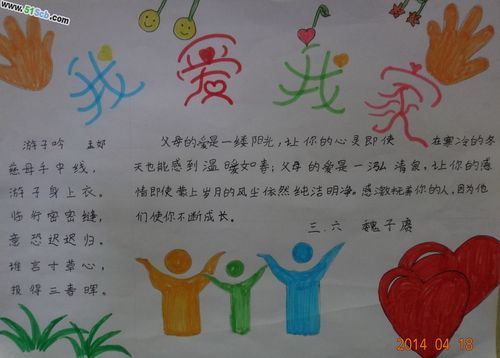 www.51Scb.com
我爱我家
游子吟 孟郊
慈母手中线，
游子身上衣。
临行密密缝，
意恐迟迟归。
谁言寸草心，
报得三春晖。
父母的爱是一缕阳光，让你的心灵即使在寒冷的冬
天也能感到温暖如春；父母的爱是一泓清泉，让你的感
情即使蒙上岁月的风尘依然纯洁明净。感激抚养你的人，因为他
们使你不断成长。
三.六 魏子赓
2014 04 18